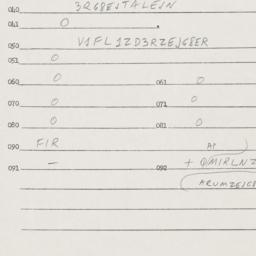 040 3RG8ESTALEJN
041 0
050 V1FL1ZD3RZEJG8ER
051 0
060 0 061 0
070 0 071 0
080 0 081 0
090 FIR AP
091 — 092 + QMIRLNZ
ARUMZEJG8